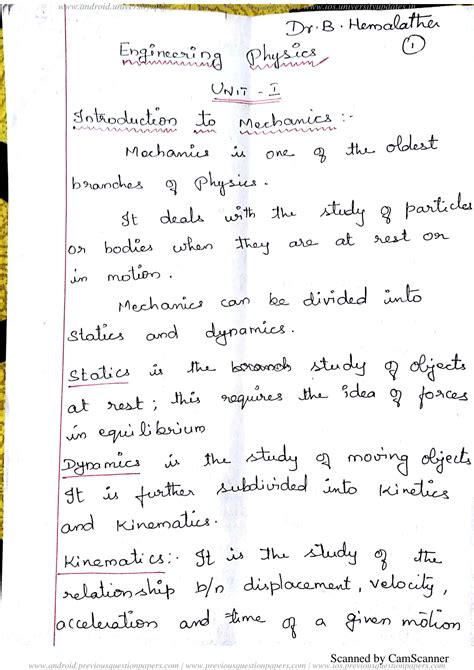 www.android.universityupdates.in / www.universityupdates.in / www.ios.universityupdates.in
Dr. B. Hemalatha
1
Engineering Physics
UNIT - I
Introduction to Mechanics :-
Mechanics is one of the oldest
branches of Physics.
It deals with the study of particles
or bodies when they are at rest or
in motion.
Mechanics can be divided into
statics and dynamics.
Statics is the branch study of objects
at rest ; this requires the idea of forces
in equilibrium
Dynamics is the study of moving objects
It is further subdivided into Kinetics
and Kinematics.
Kinematics:- It is the study of the
relationship b/n displacement, velocity,
acceleration and time of a given motion
www.android.previousquestionpapers.com / www.previousquestionpapers.com / www.ios.previousquestionpapers.com
Scanned by CamScanner